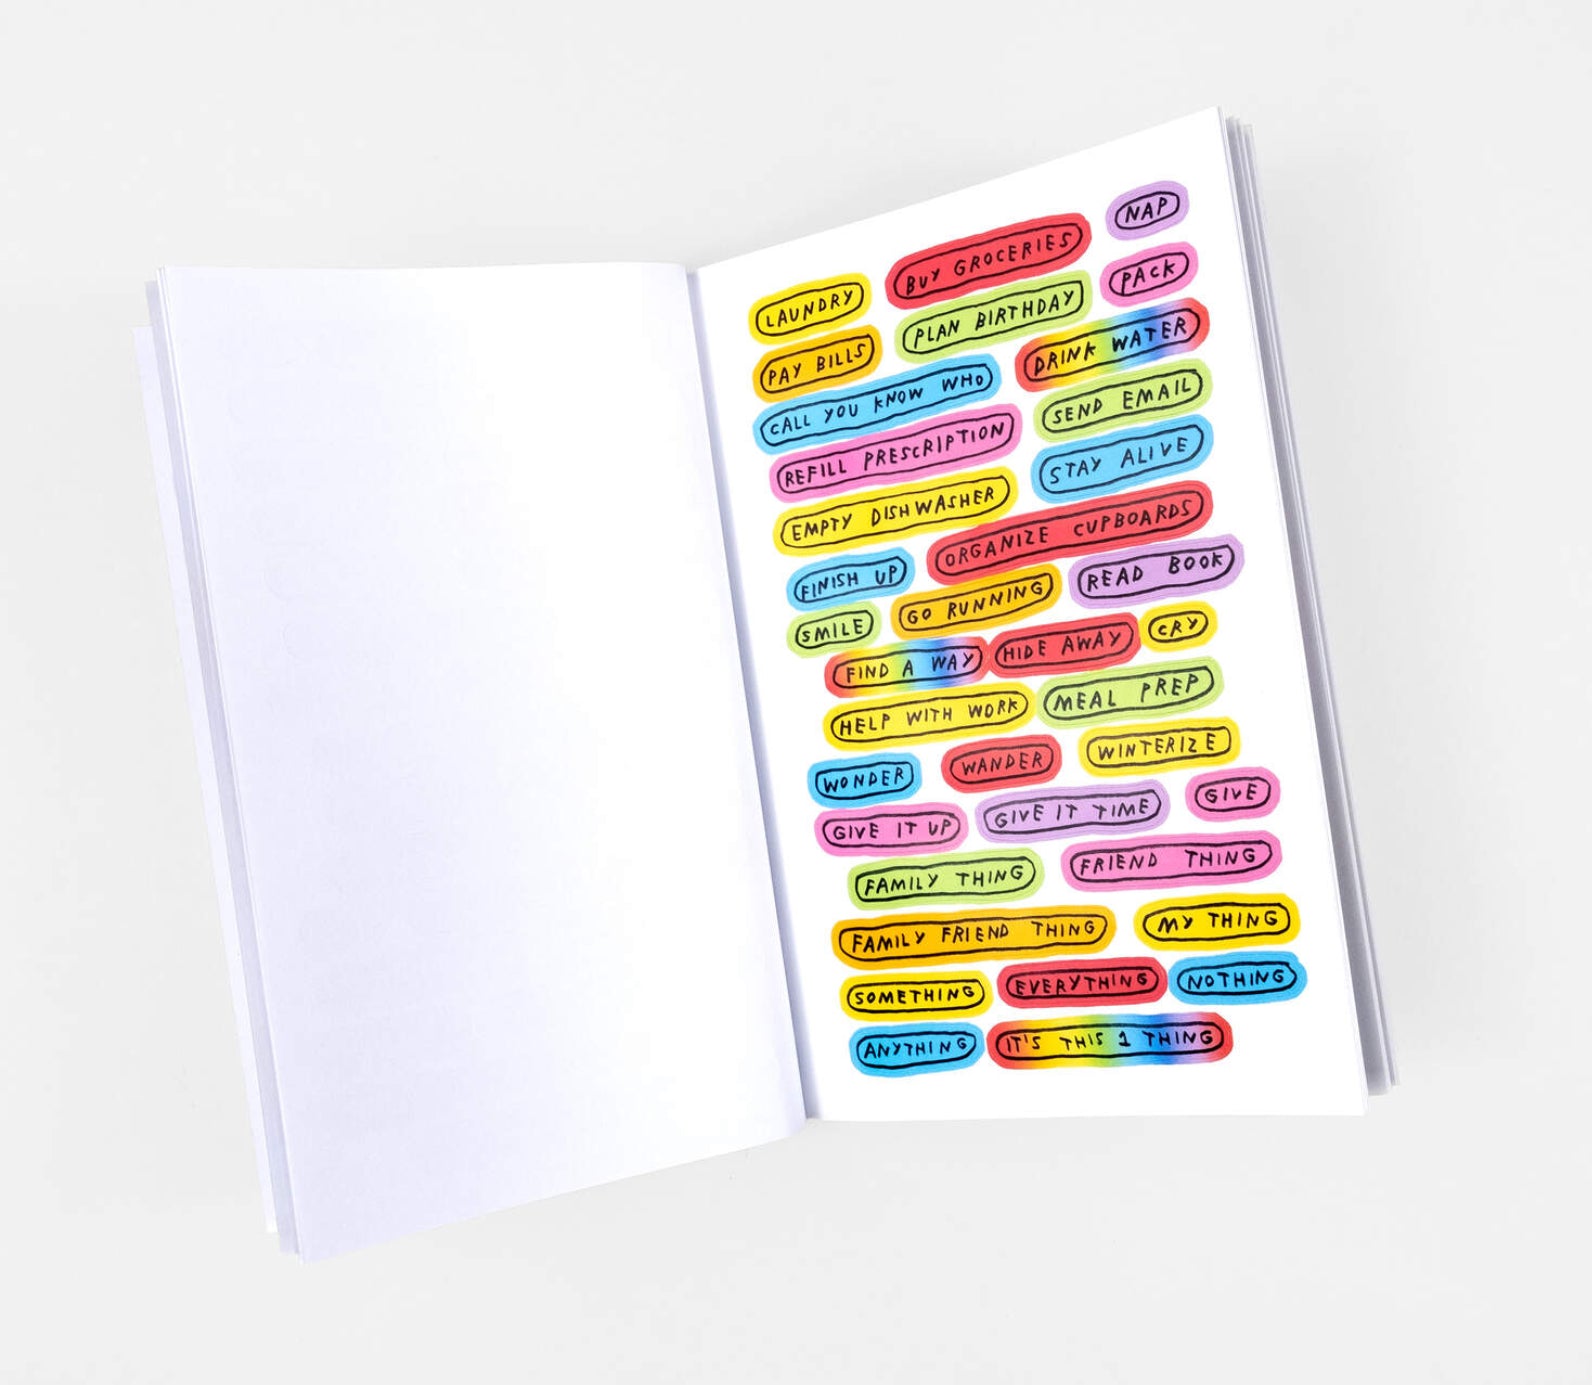 LAUNDRY
BUY GROCERIES
NAP
PAY BILLS
PLAN BIRTHDAY
PACK
CALL YOU KNOW WHO
DRINK WATER
REFILL PRESCRIPTION
SEND EMAIL
EMPTY DISHWASHER
STAY ALIVE
FINISH UP
ORGANIZE CUPBOARDS
SMILE
GO RUNNING
READ BOOK
FIND A WAY
HIDE AWAY
CRY
HELP WITH WORK
MEAL PREP
WONDER
WANDER
WINTERIZE
GIVE IT UP
GIVE IT TIME
GIVE
FAMILY THING
FRIEND THING
FAMILY FRIEND THING
MY THING
SOMETHING
EVERYTHING
NOTHING
ANYTHING
IT'S THIS 1 THING